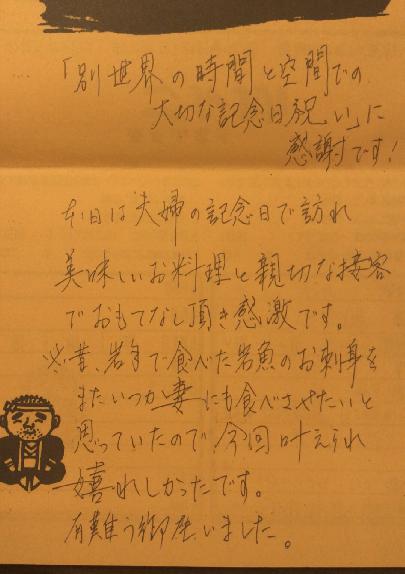 「別世界の時間と空間での
大切な記念日祝い」に
感謝です!
本日は夫婦の記念日で訪れ
美味しいお料理と親切な接客
でおもてなし頂き感激です。
※昔、岩手で食べた岩魚のお刺身を
またいつか妻にも食べさせたいと
思っていたので、今回叶えられ
嬉れしかったです。
有難う御座いました。